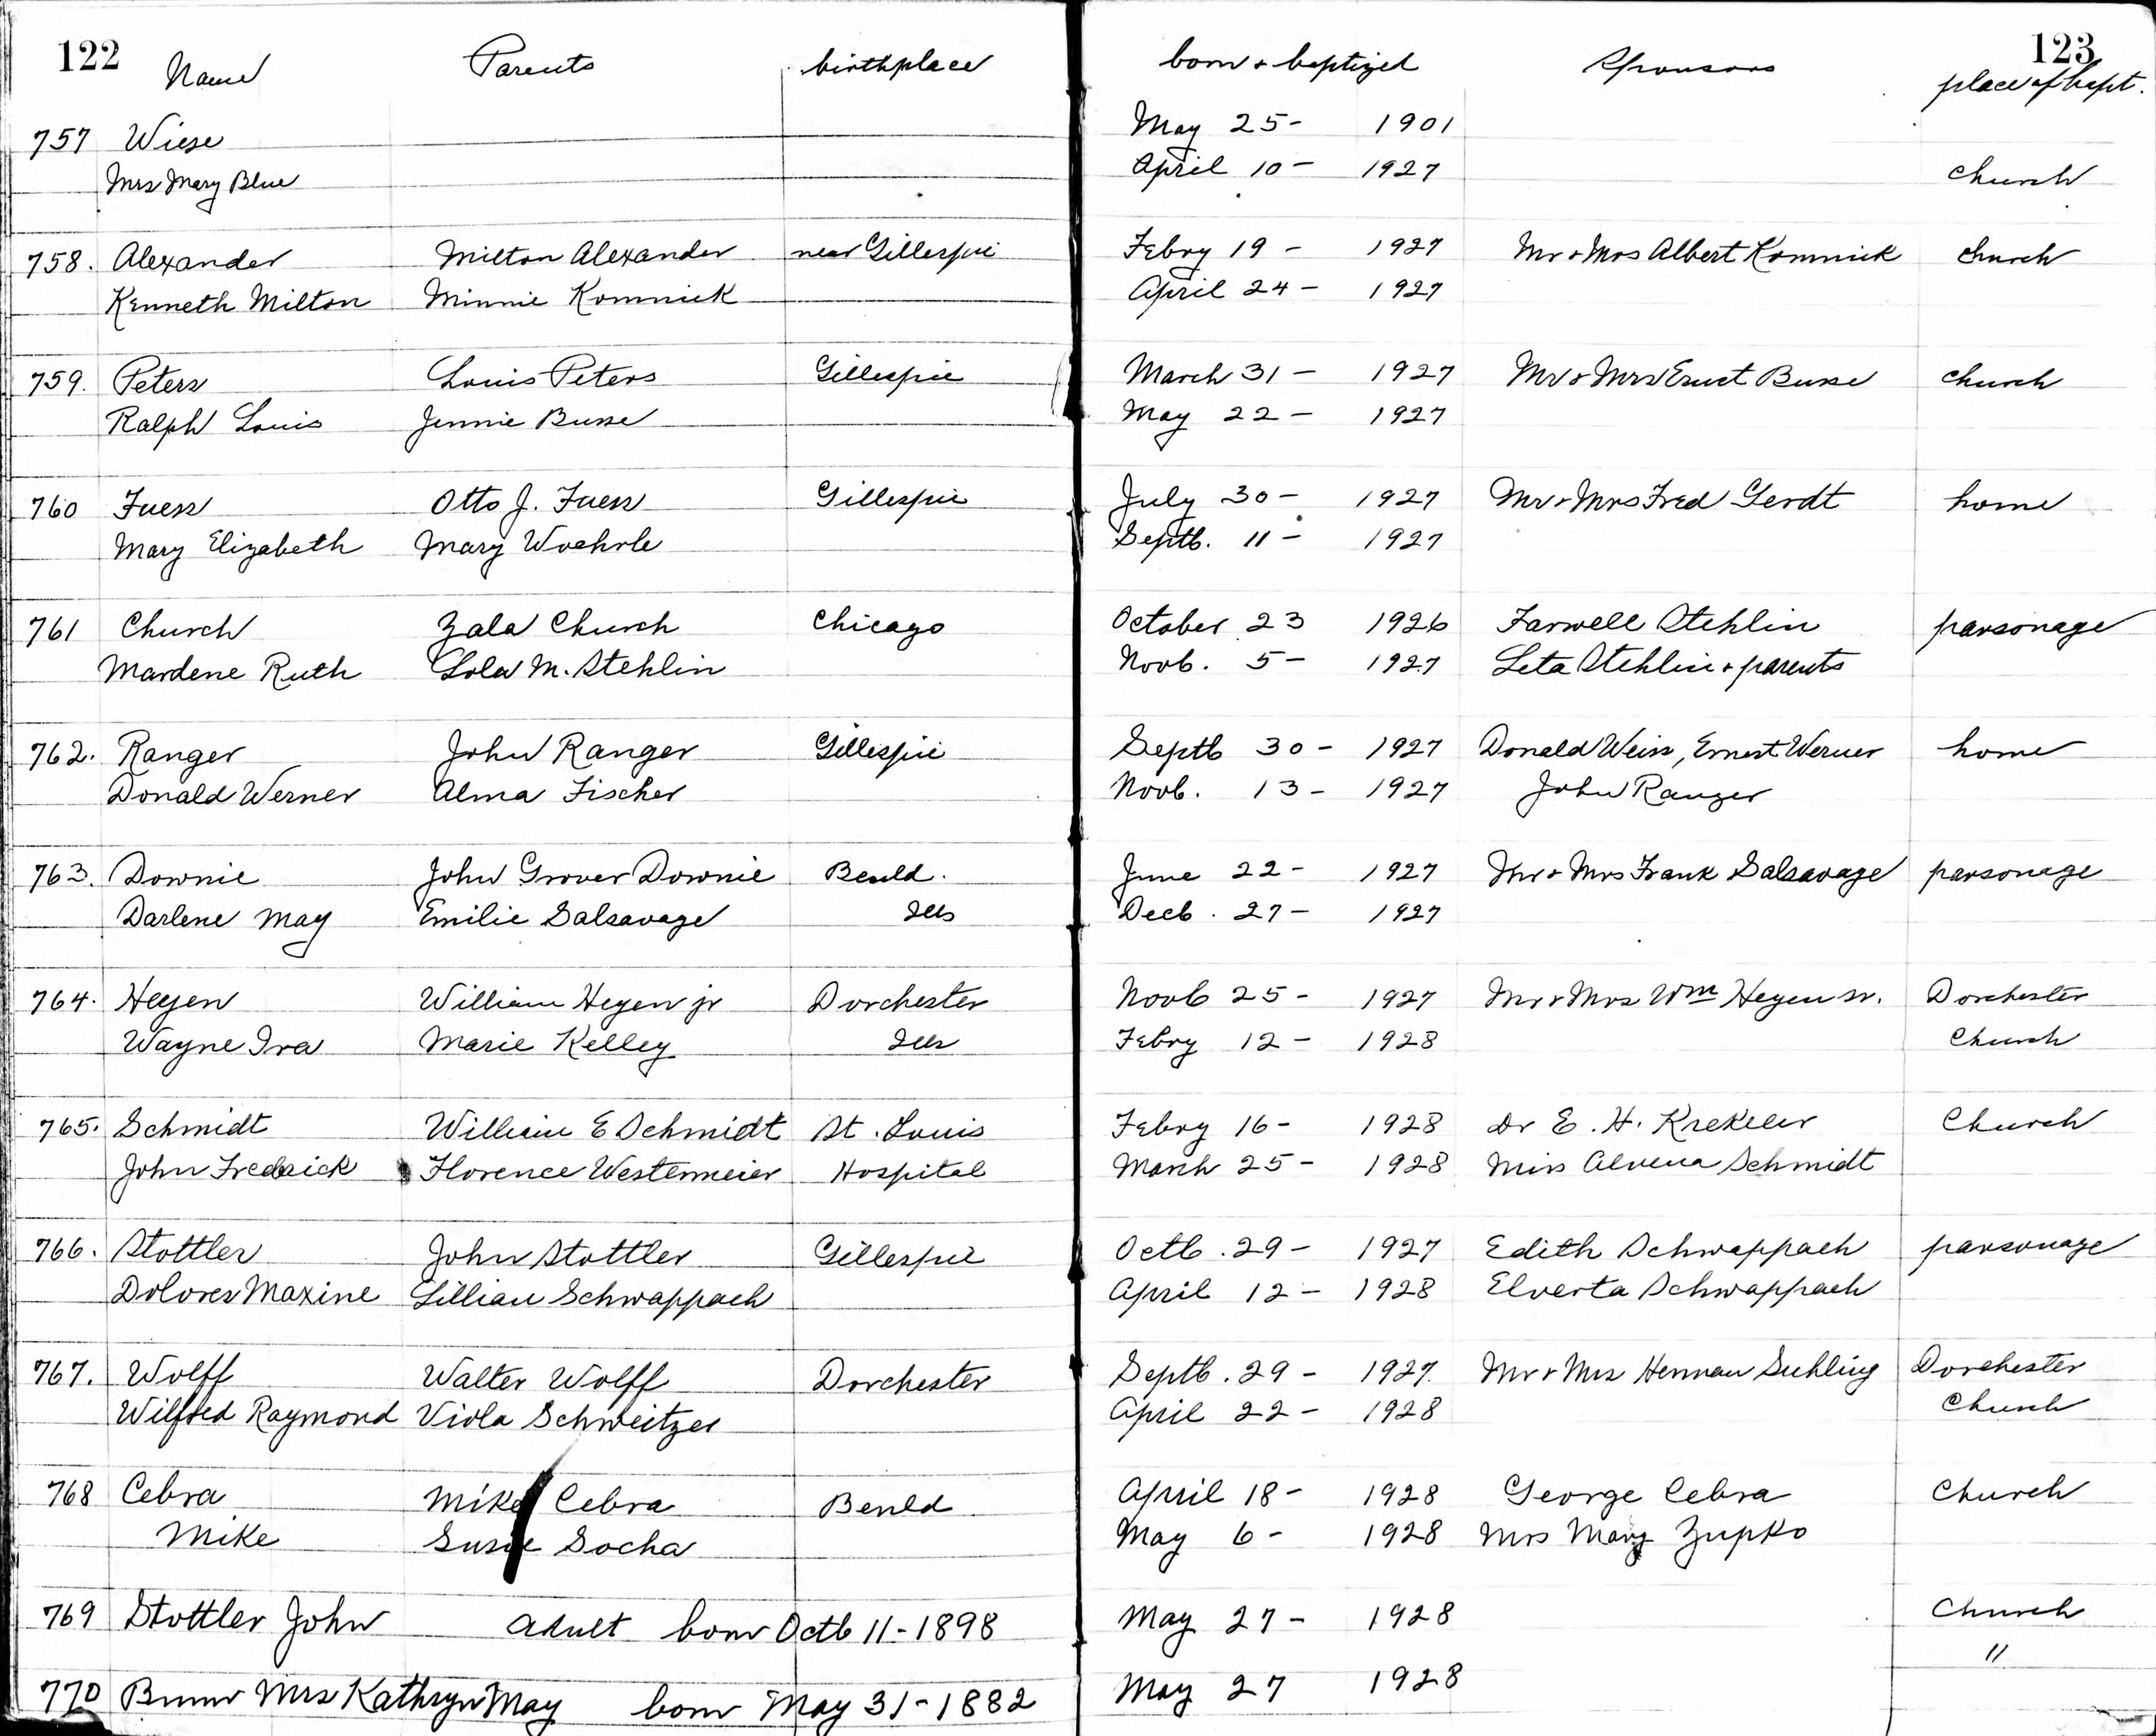 122
Name Parents birthplace born & baptized Sponsors 123
place of bapt.
757 Wiese May 25- 1901
Mrs Mary Blue April 10- 1927 Church
758. Alexander Milton Alexander near Gillespie Febry 19- 1927 Mr & Mrs Albert Komnick Church
Kenneth Milton Minnie Komnick April 24- 1927
759. Peters Louis Peters Gillespie March 31- 1927 Mr & Mrs Ernst Busse Church
Ralph Louis Jennie Busse May 22- 1927
760 Fuess Otto J. Fuess Gillespie July 30- 1927 Mr & Mrs Fred Gerdt home
Mary Elizabeth Mary Woehrle Septb. 11- 1927
761 Church Zala Church Chicago October 23 1926 Farwell Stehlin parsonage
Mardene Ruth Lola M. Stehlin Novb. 5- 1927 Leta Stehlin & parents
762. Ranger John Ranger Gillespie Septb 30- 1927 Donald Weiss, Ernest Werner home
Donald Werner Alma Fischer Novb. 13- 1927 John Ranger
763. Downie John Grover Downie Benld. June 22- 1927 Mr & Mrs Frank Salsavage parsonage
Darlene May Emilie Salsavage Ills Decb. 27- 1927
764. Heyen William Heyen jr Dorchester Novb 25- 1927 Mr & Mrs Wm Heyen sr. Dorchester
Wayne Ira Marie Kelley Ills Febry 12- 1928 Church
765. Schmidt William E Schmidt St. Louis Febry 16- 1928 Dr E. H. Krekeler Church
John Fredrick Florence Westermeier Hospital March 25- 1928 Miss Alvena Schmidt
766. Stottler John Stottler Gillespie Octb. 29- 1927 Edith Schwappach parsonage
Dolores Maxine Lillian Schwappach April 12- 1928 Elverta Schwappach
767. Wolff Walter Wolff Dorchester Septb. 29- 1927. Mr & Mrs Herman Suhling Dorchester
Wilfred Raymond Viola Schweitzer April 22- 1928 Church
768 Cebra Mike Cebra Benld April 18- 1928 George Cebra Church
Mike Susie Socha May 6- 1928 Mrs Mary Zupko
769 Stottler John Adult born Octb 11-1898 May 27- 1928 Church
770 Mrs Kathryn May born May 31-1882 May 27 1928 "